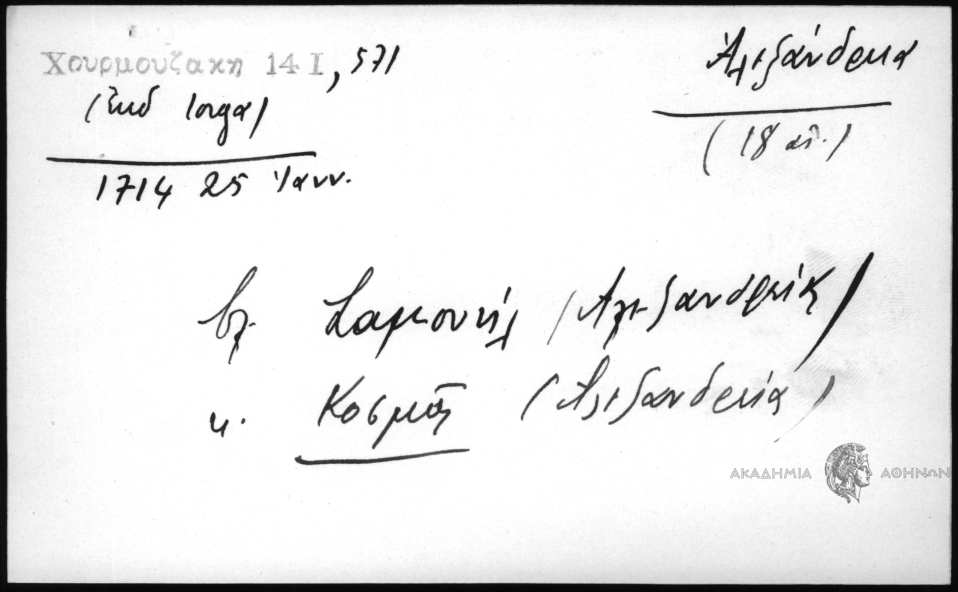 Χουρμουζακη 14 I, 571
(Ἐκδ Iorga)
1714 25 Ἰανν.
Ἀλεξάνδρεια
(18 αἰ.)
βλ. Σαμουήλ (Ἀλεξανδρείας)
κ. Κοσμᾶς (Ἀλεξανδρεία)
ΑΚΑΔΗΜΙΑ ΑΘΗΝΩΝ